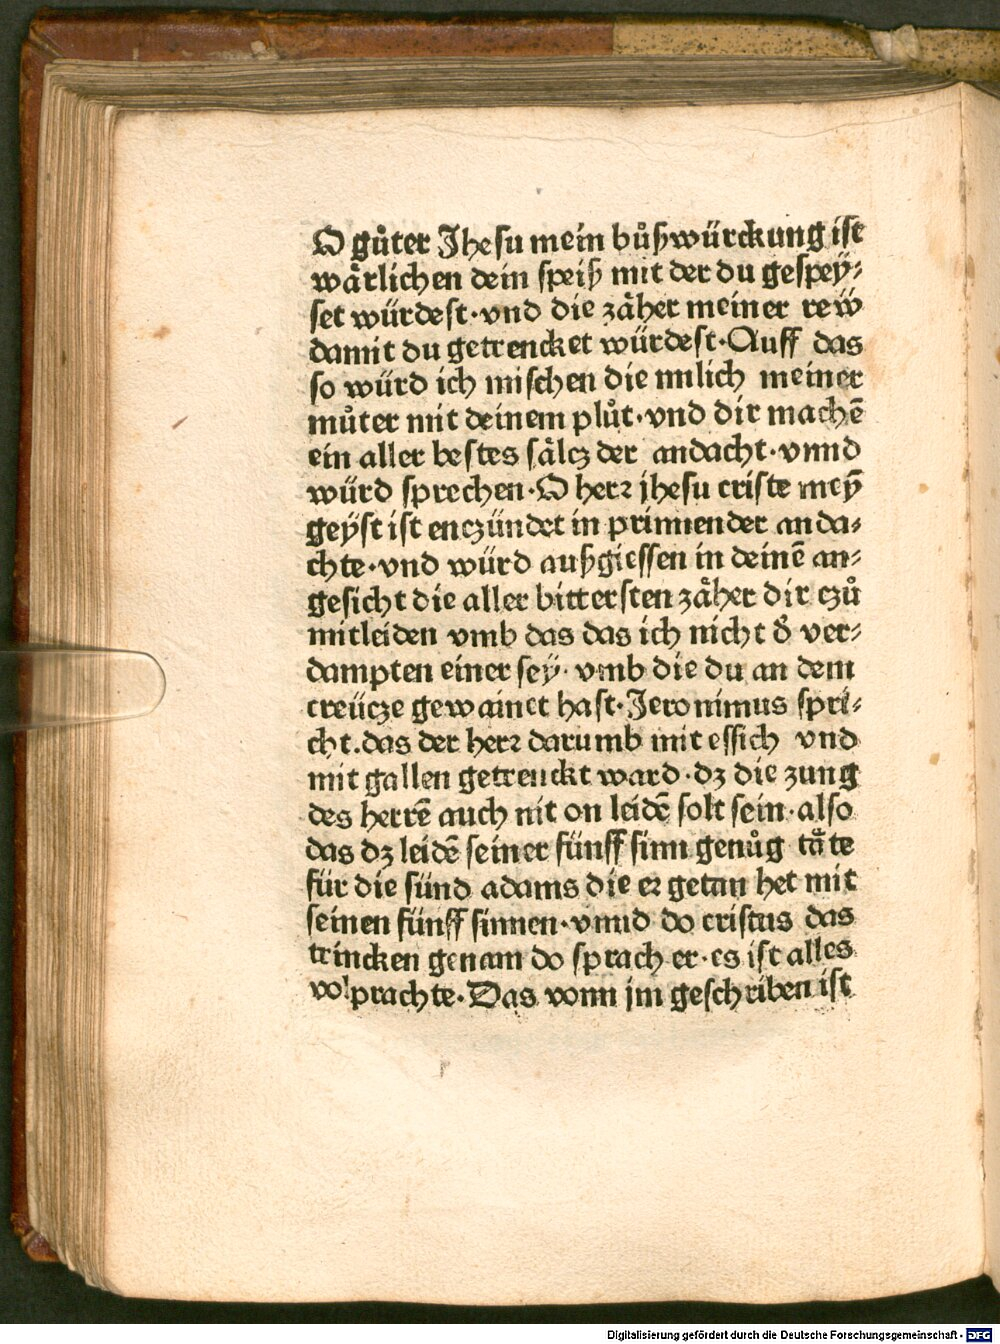 O gůter Jhesu mein bůßwürckung ist
wårlichen dein speiß mit der du gespey⸗
set würdest·vnd die zåher meiner rew̎
damit du getrencket würdest·Auff das
so würd ich mischen die milich meiner
můter mit deinem plůt·vnd dir machē
ein aller bestes sålcz der andacht·vnnd
würd sprechen·O herꝛ jhesu criste meȳ
geÿst ist enczündet in prinnender anda⸗
chte·vnd würd außgiessen in deinē an⸗
gesicht die aller bittersten zåher dir czů
mitleiden vmb das das ich nicht d̛ ver⸗
dampten einer seÿ·vmb die du an dem
creücze gewainet hast·Jeronimus spri⸗
cht.das der herꝛ darumb mit essich vnd
mit gallen getrenckt ward·dz die zung
des herrē auch nit on leidē solt sein·also
das dz leidē seiner fünff sinn genůg tåte
für die sünd adams die eꝛ getan het mit
seinen fünff sinnen·vnnd do cristus das
trincken genam do sprach er·es ist alles
volprachte·Das vonn jm geschriben ist
Digitalisierung gefördert durch die Deutsche Forschungsgemeinschaft - DFG